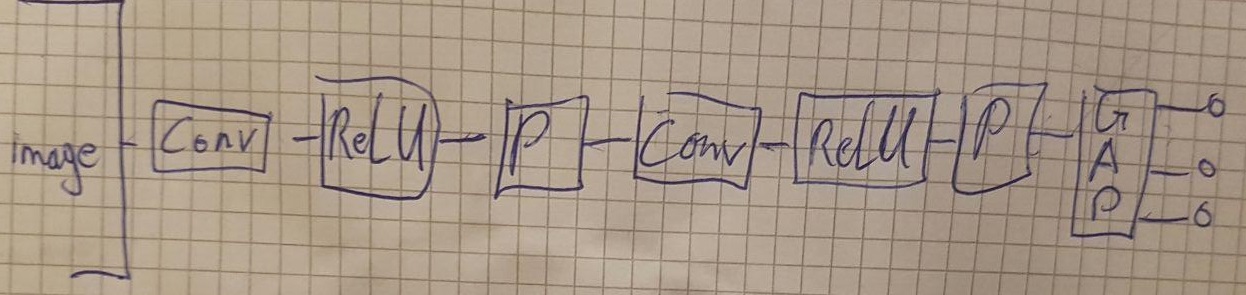 image Conv ReLU P Conv ReLU P
G
A
P